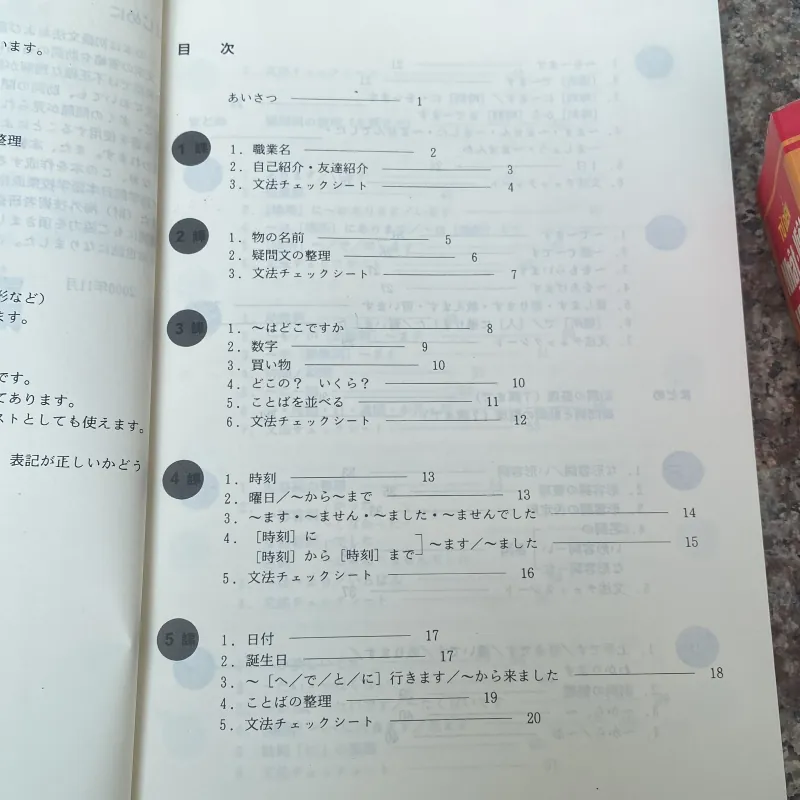 います。
整理
形など）
ます。
です。
てあります。
ストとしても使えます。
表記が正しいかどう
目 次
あいさつ 1
1課
1. 職業名 2
2. 自己紹介・友達紹介 3
3. 文法チェックシート 4
2課
1. 物の名前 5
2. 疑問文の整理 6
3. 文法チェックシート 7
3課
1. ～はどこですか 8
2. 数字 9
3. 買い物 10
4. どこの？ いくら？ 10
5. ことばを並べる 11
6. 文法チェックシート 12
4課
1. 時刻 13
2. 曜日／～から～まで 13
3. ～ます・～ません・～ました・～ませんでした 14
4. ［時刻］に
［時刻］から［時刻］まで ～ます／～ました 15
5. 文法チェックシート 16
5課
1. 日付 17
2. 誕生日 17
3. ～［へ／で／と／に］行きます／～から来ました 18
4. ことばの整理 19
5. 文法チェックシート 20